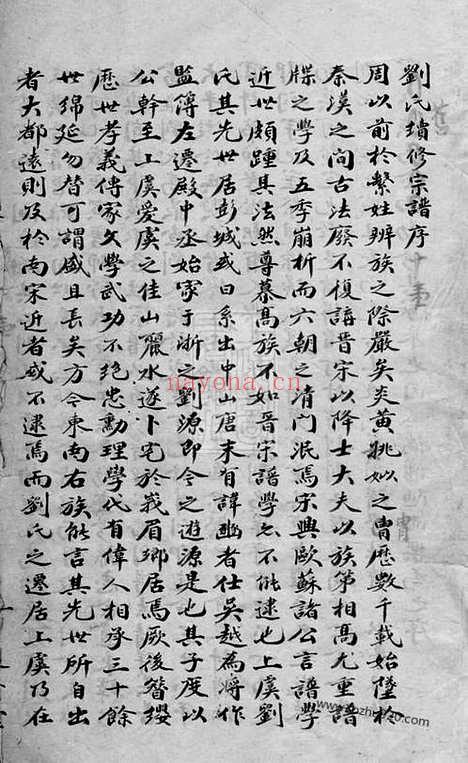 劉氏續修宗譜序
周以前於繫姓辨族之際嚴矣炎黃姚姒之胄歷數千載始墜於
秦漢之間古法廢不復講晉宋以降士大夫以族第相高尤重譜
牒之學及五季崩析而六朝之清門泯焉宋興歐蘇諸公言譜學
近世頗踵其法然尊慕高族不如晉宋譜學亦不能逮也上虞劉
氏其先世居彭城或曰系出中山唐末有諱幽者仕吳越為將作
監簿左遷殿中丞始家于浙之劉源即今之遊源是也其子度以
公幹至上虞愛虞之佳山麗水遂卜宅於峩眉鄉居焉厥後簪纓
歷世孝義傳家文學武功不絕忠勳理學代有偉人相承三十餘
世綿延勿替可謂盛且長矣方今東南右族能言其先世所自出
者大都遠則及於南宋近者或不逮焉而劉氏之遷居上虞乃在
nayona.cn